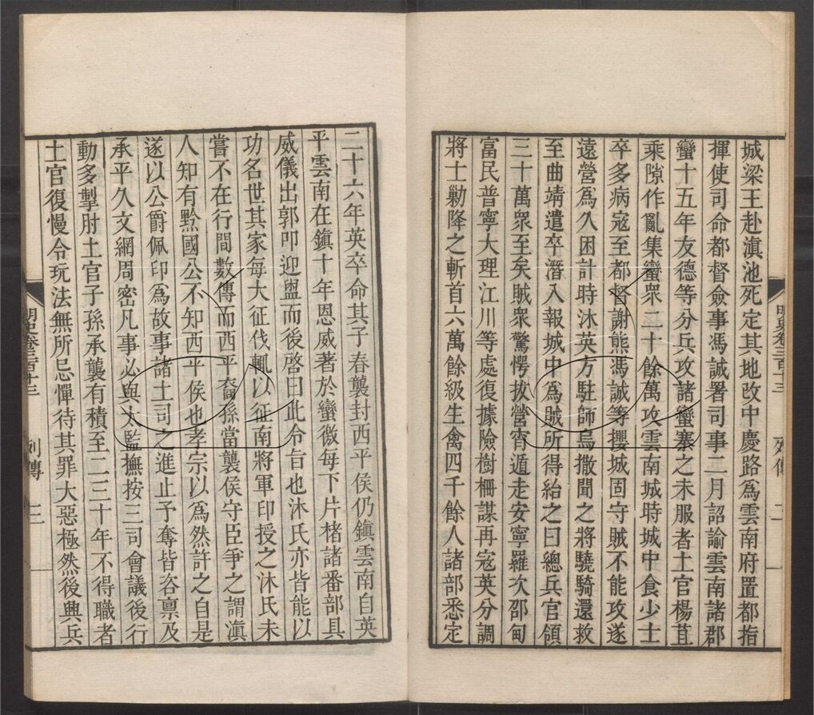 城梁王赴滇池死定其地改中慶路爲雲南府置都指
揮使司命都督僉事馮誠署司事二月詔諭雲南諸郡
蠻十五年友德等分兵攻諸蠻寨之未服者土官楊苴
乘隙作亂集蠻衆二十餘萬攻雲南城時城中食少士
卒多病寇至都督謝熊馮誠等攖城固守賊不能攻遂
遠營爲久困計時沐英方駐師烏撒聞之將驍騎還救
至曲靖遣卒潛入報城中爲賊所得紿之曰總兵官領
三十萬衆至矣賊衆驚愕拔營宵遁走安寧羅次邵甸
富民普寧大理江川等處復據險樹柵謀再寇英分調
將士勦降之斬首六萬餘級生禽四千餘人諸部悉定
二十六年英卒命其子春襲封西平侯仍鎮雲南自英
平雲南在鎮十年恩威著於蠻徼每下片楮諸番部具
威儀出郭叩迎盥而後啓曰此令旨也沐氏亦皆能以
功名世其家每大征伐輒以征南將軍印授之沐氏未
嘗不在行間數傳而西平裔孫當襲侯守臣爭之謂滇
人知有黔國公不知西平侯也孝宗以爲然許之自是
遂以公爵佩印爲故事諸土司之進止予奪皆咨稟及
承平久文網周密凡事必與太監撫按三司會議後行
動多掣肘土官子孫承襲有積至二三十年不得職者
土官復慢令玩法無所忌憚待其罪大惡極然後興兵
明史卷三百十三 列傳 二